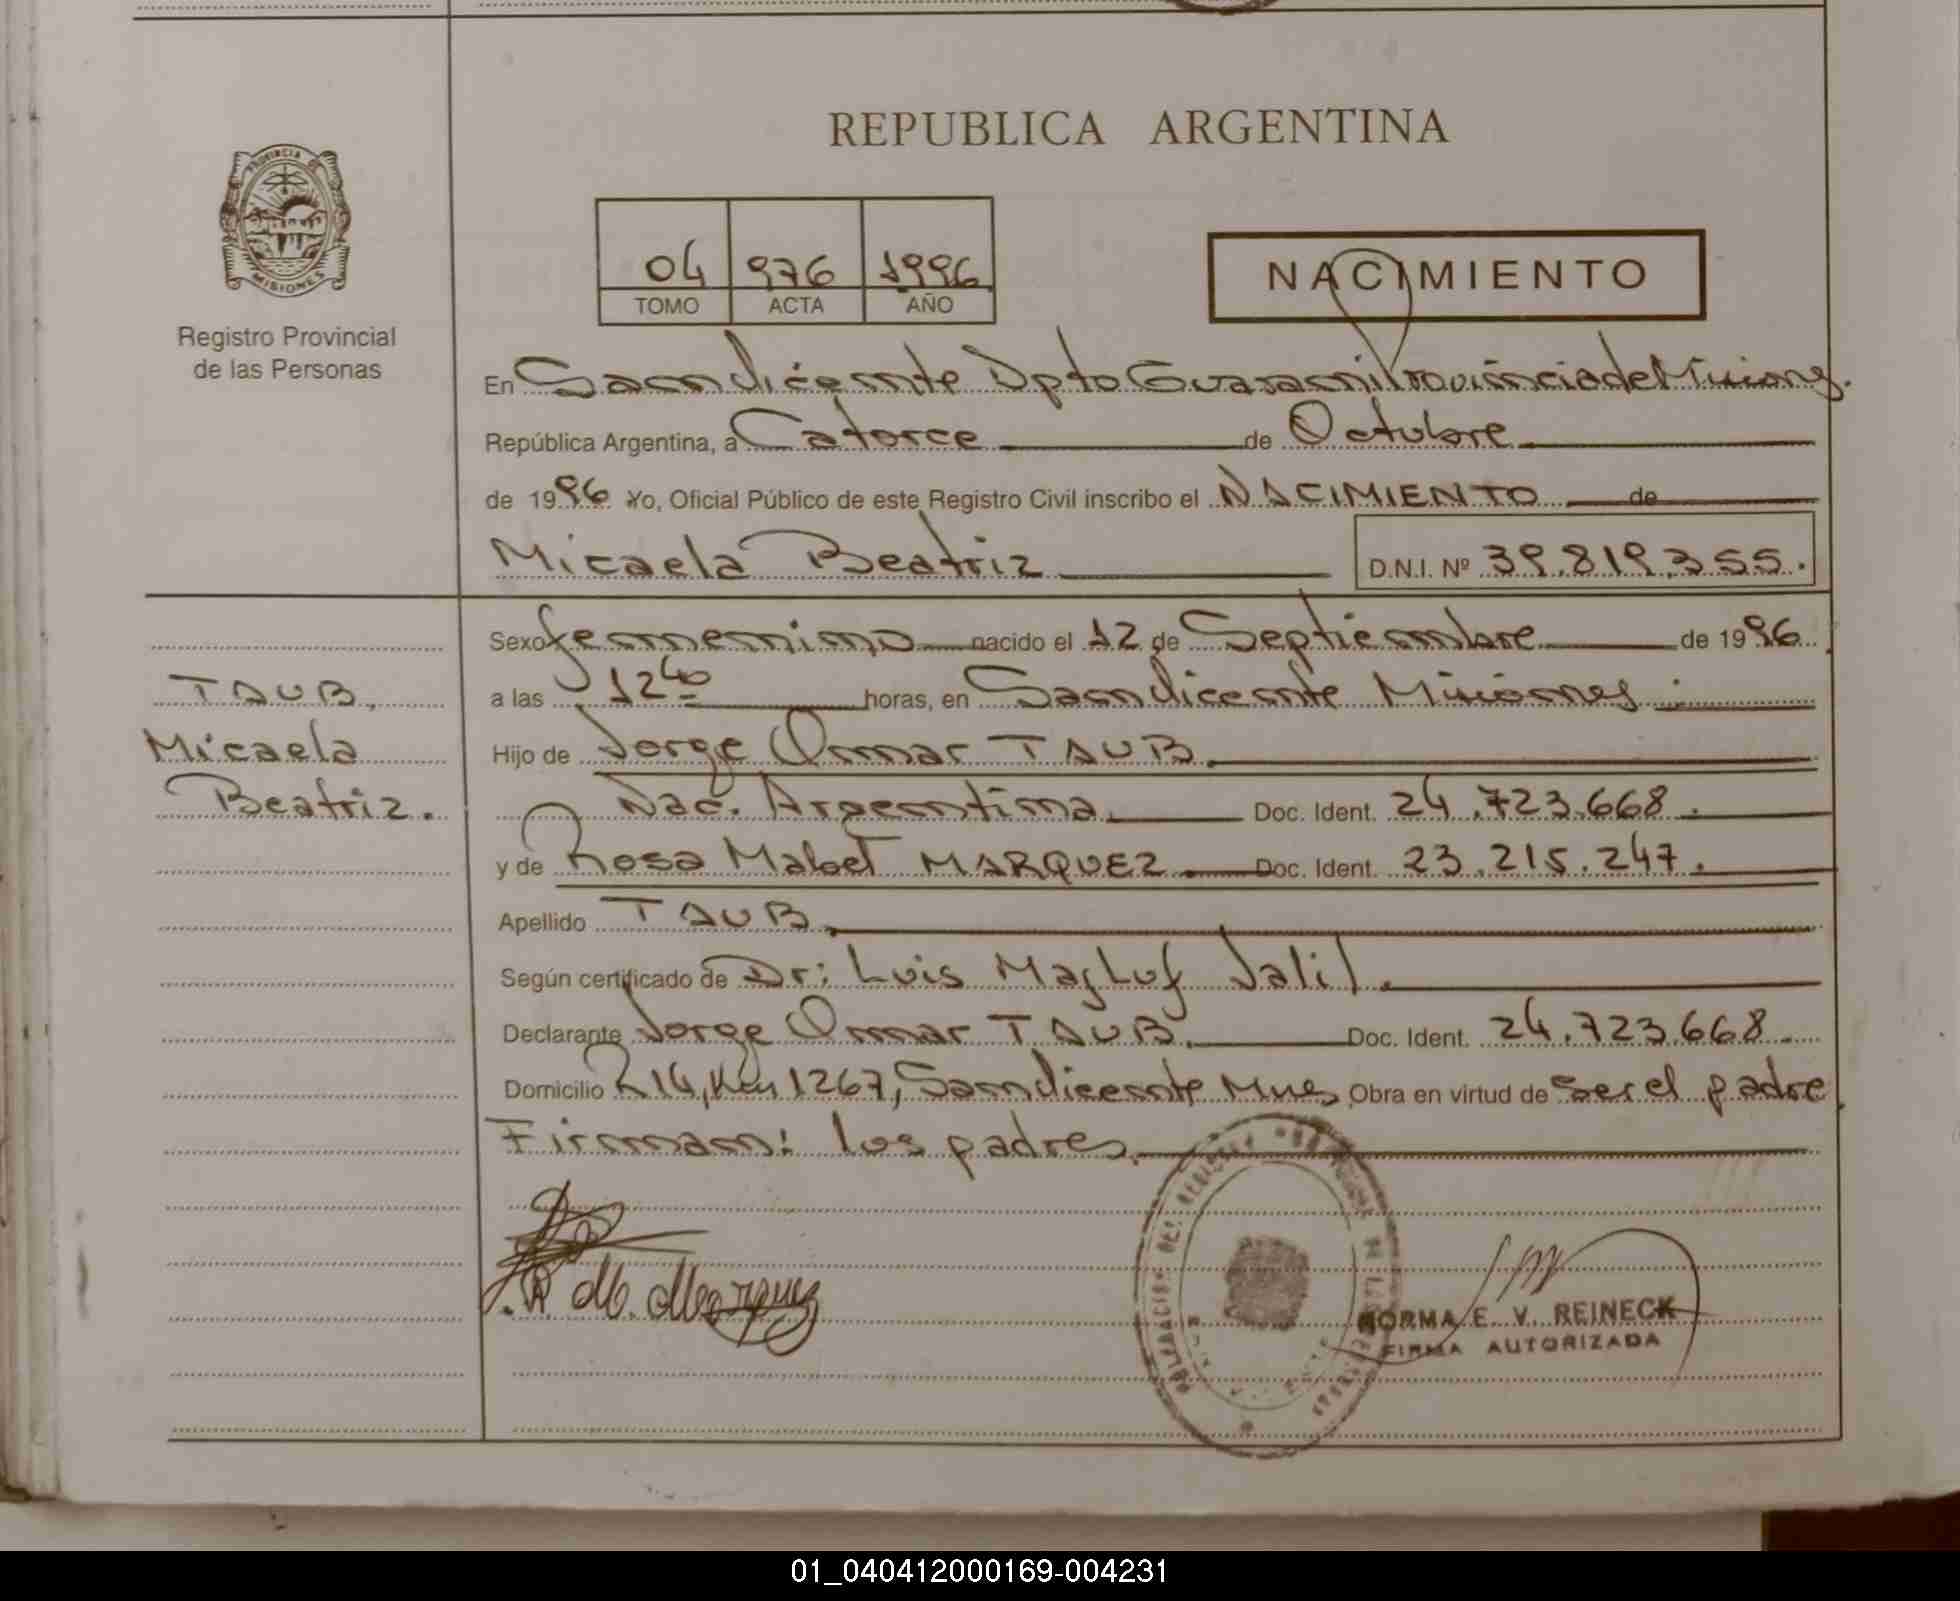 REPUBLICA ARGENTINA
PROVINCIA DE
MISIONES
Registro Provincial
de las Personas
04 976 1996
TOMO ACTA AÑO
NACIMIENTO
En San Vicente Dpto Guarani Provincia de Misiones.
República Argentina, a Catorce de Octubre
de 1996 Yo, Oficial Público de este Registro Civil inscribo el NACIMIENTO de
Micaela Beatriz D.N.I. Nº 39.819.355.
TAUB,
Micaela
Beatriz.
Sexo femenino nacido el 12 de Septiembre de 1996
a las 12 40 horas, en San Vicente Misiones.
Hijo de Jorge Omar TAUB.
Nac. Argentina. Doc. Ident. 24.723.668.
y de Rosa Mabel MARQUEZ. Doc. Ident. 23.215.247.
Apellido TAUB.
Según certificado de Dr: Luis Majluf Jalil.
Declarante Jorge Omar TAUB. Doc. Ident. 24.723.668.
Domicilio R 14, Km 1267, San Vicente Mnes Obra en virtud de ser el padre
Firman: los padres.
R. M. Marquez
NORMA E. V. REINECK
FIRMA AUTORIZADA
01_040412000169-004231